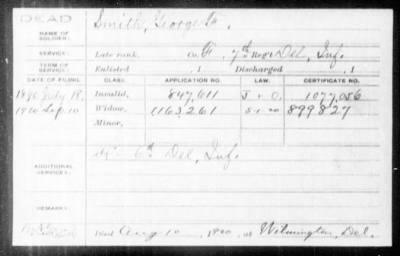 DEAD
NAME OF SOLDIER:
Smith, George
SERVICE:
Late rank, Co. 7th Reg't Del, Inf.
TERM OF SERVICE:
Enlisted , 1 Discharged , 1
DATE OF FILING. CLASS. APPLICATION NO. LAW. CERTIFICATE NO.
1890 July 18, Invalid, 847,611 1077,056
1920 Sep. 10 Widow, 1163,261 5-1-20 899827
Minor,
ADDITIONAL SERVICES:
6th Del, Inf.
REMARKS:
Died Aug 10, 1920, at Wilmington, Del.